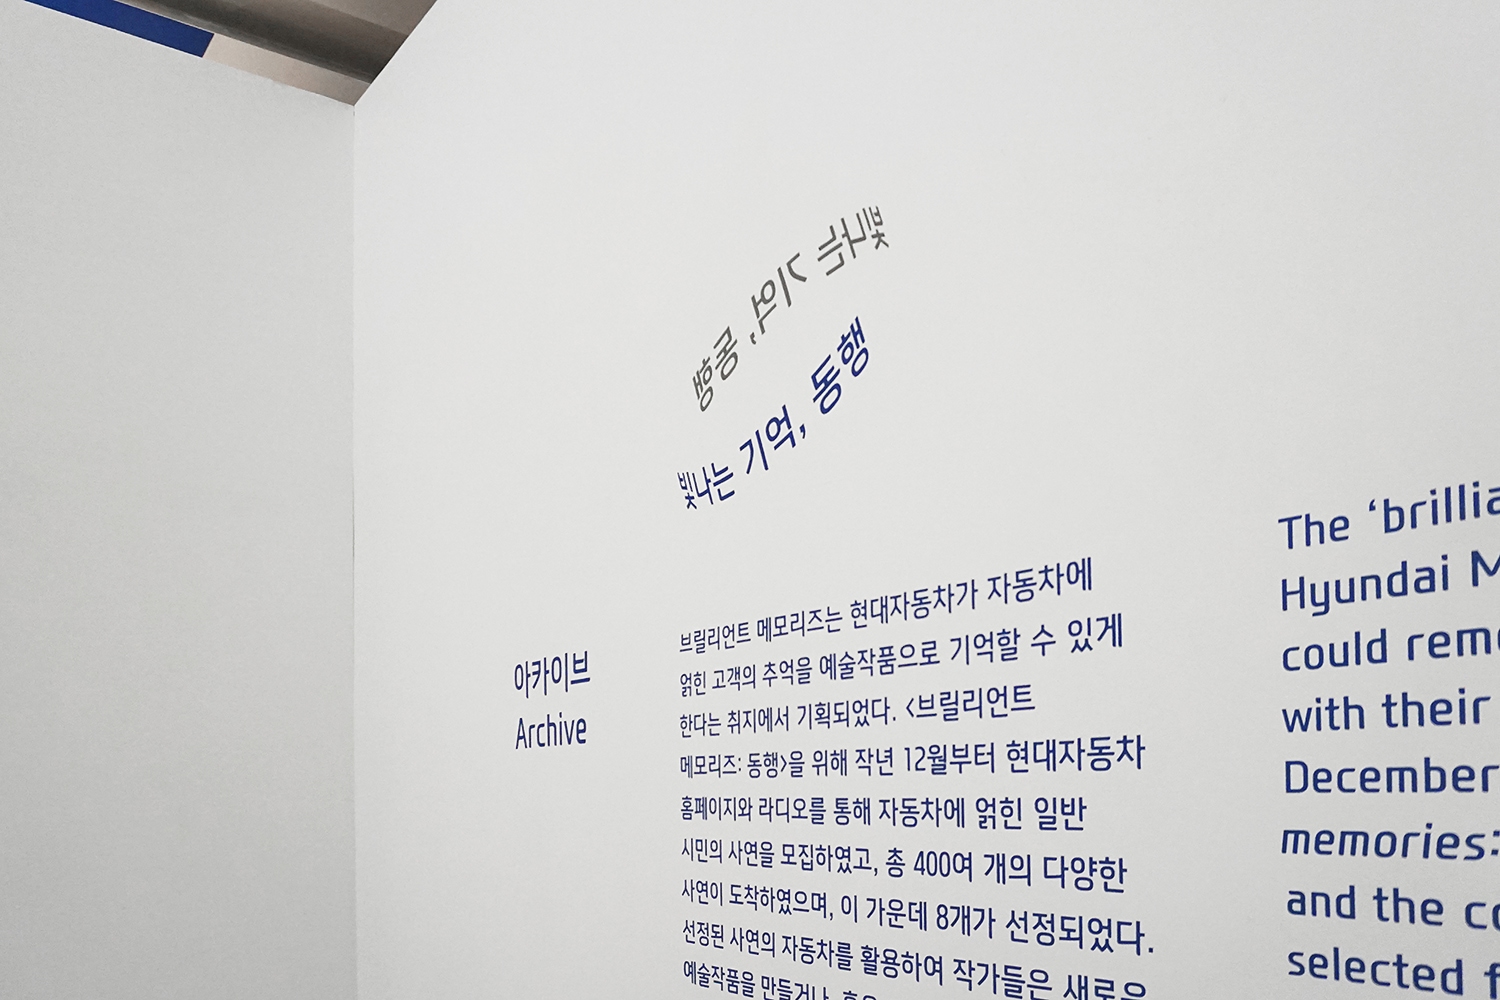 빛나는 기억, 동행
빛나는 기억, 동행
아카이브
Archive
브릴리언트 메모리즈는 현대자동차가 자동차에
얽힌 고객의 추억을 예술작품으로 기억할 수 있게
한다는 취지에서 기획되었다. <브릴리언트
메모리즈: 동행>을 위해 작년 12월부터 현대자동차
홈페이지와 라디오를 통해 자동차에 얽힌 일반
시민의 사연을 모집하였고, 총 400여 개의 다양한
사연이 도착하였으며, 이 가운데 8개가 선정되었다.
선정된 사연의 자동차를 활용하여 작가들은 새로운
예술작품을 만들거나,
The ‘brillia
Hyundai M
could reme
with their
December
memories:
and the co
selected f